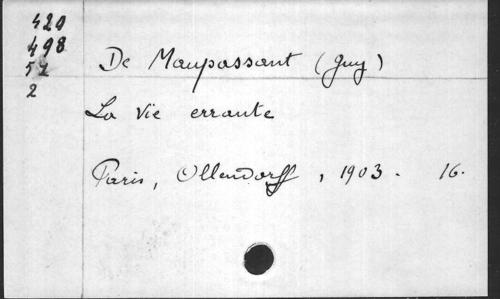 420
498
57
2
De Maupassant (Guy)
La Vie errante
Paris, Ollendorff, 1903. 16.